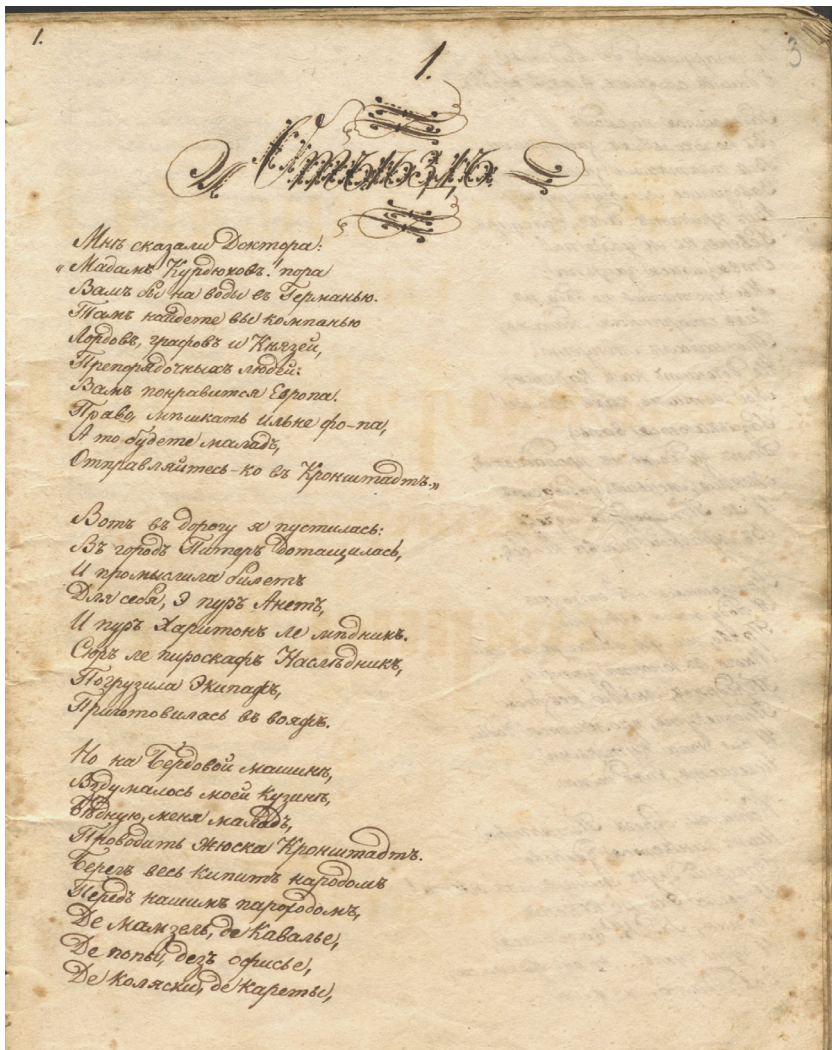 1.
3
1.
Отъѣздъ
Мнѣ сказали Доктора:
"Мадамъ Курдюковъ! пора
Вамъ бы на воды въ Германью.
Тамъ найдете вы компанью
Лордовъ, графовъ и Князей,
Препорядочныхъ людей:
Вамъ понравится Европа.
Право, мѣшкать иль не фо-па,
А то будете маладъ,
Отправляйтесь-ко въ Кронштадтъ."
Вотъ въ дорогу я пустилась:
Въ городъ Питеръ дотащилась,
И промыслила билетъ
Для себя, э пуръ Анетъ,
И пуръ Харитонъ ле мѣдникъ.
Сюръ ле пироскафъ Наслѣдникъ,
Погрузила Экипажъ,
Приготовилась въ вояжъ.
Но на Бердовой машинѣ,
Вздумалось моей Кузинѣ,
Бѣдную, меня маладъ,
Проводить жюска Кронштадтъ.
Берегъ весь кипитъ народомъ
Передъ нашимъ пароходомъ,
Де мамзель, де Кавалье,
Де попы, дезъ офисье,
Де коляски, де кареты,